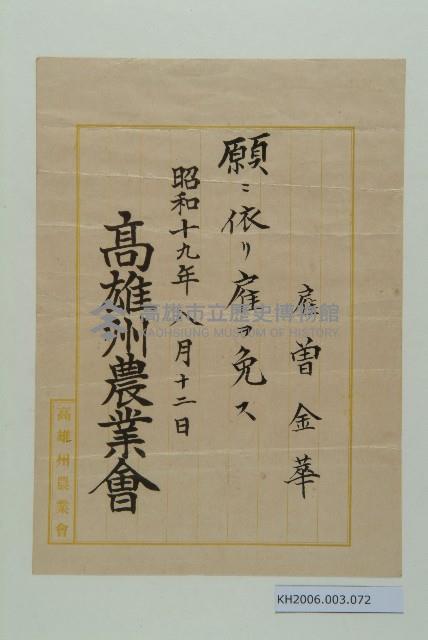 雇 曽金華
願ニ依リ雇ヲ免ス
昭和十九年八月十二日
高雄州農業會
高雄州農業會
高雄市立歷史博物館
KAOHSIUNG MUSEUM OF HISTORY
KH2006.003.072